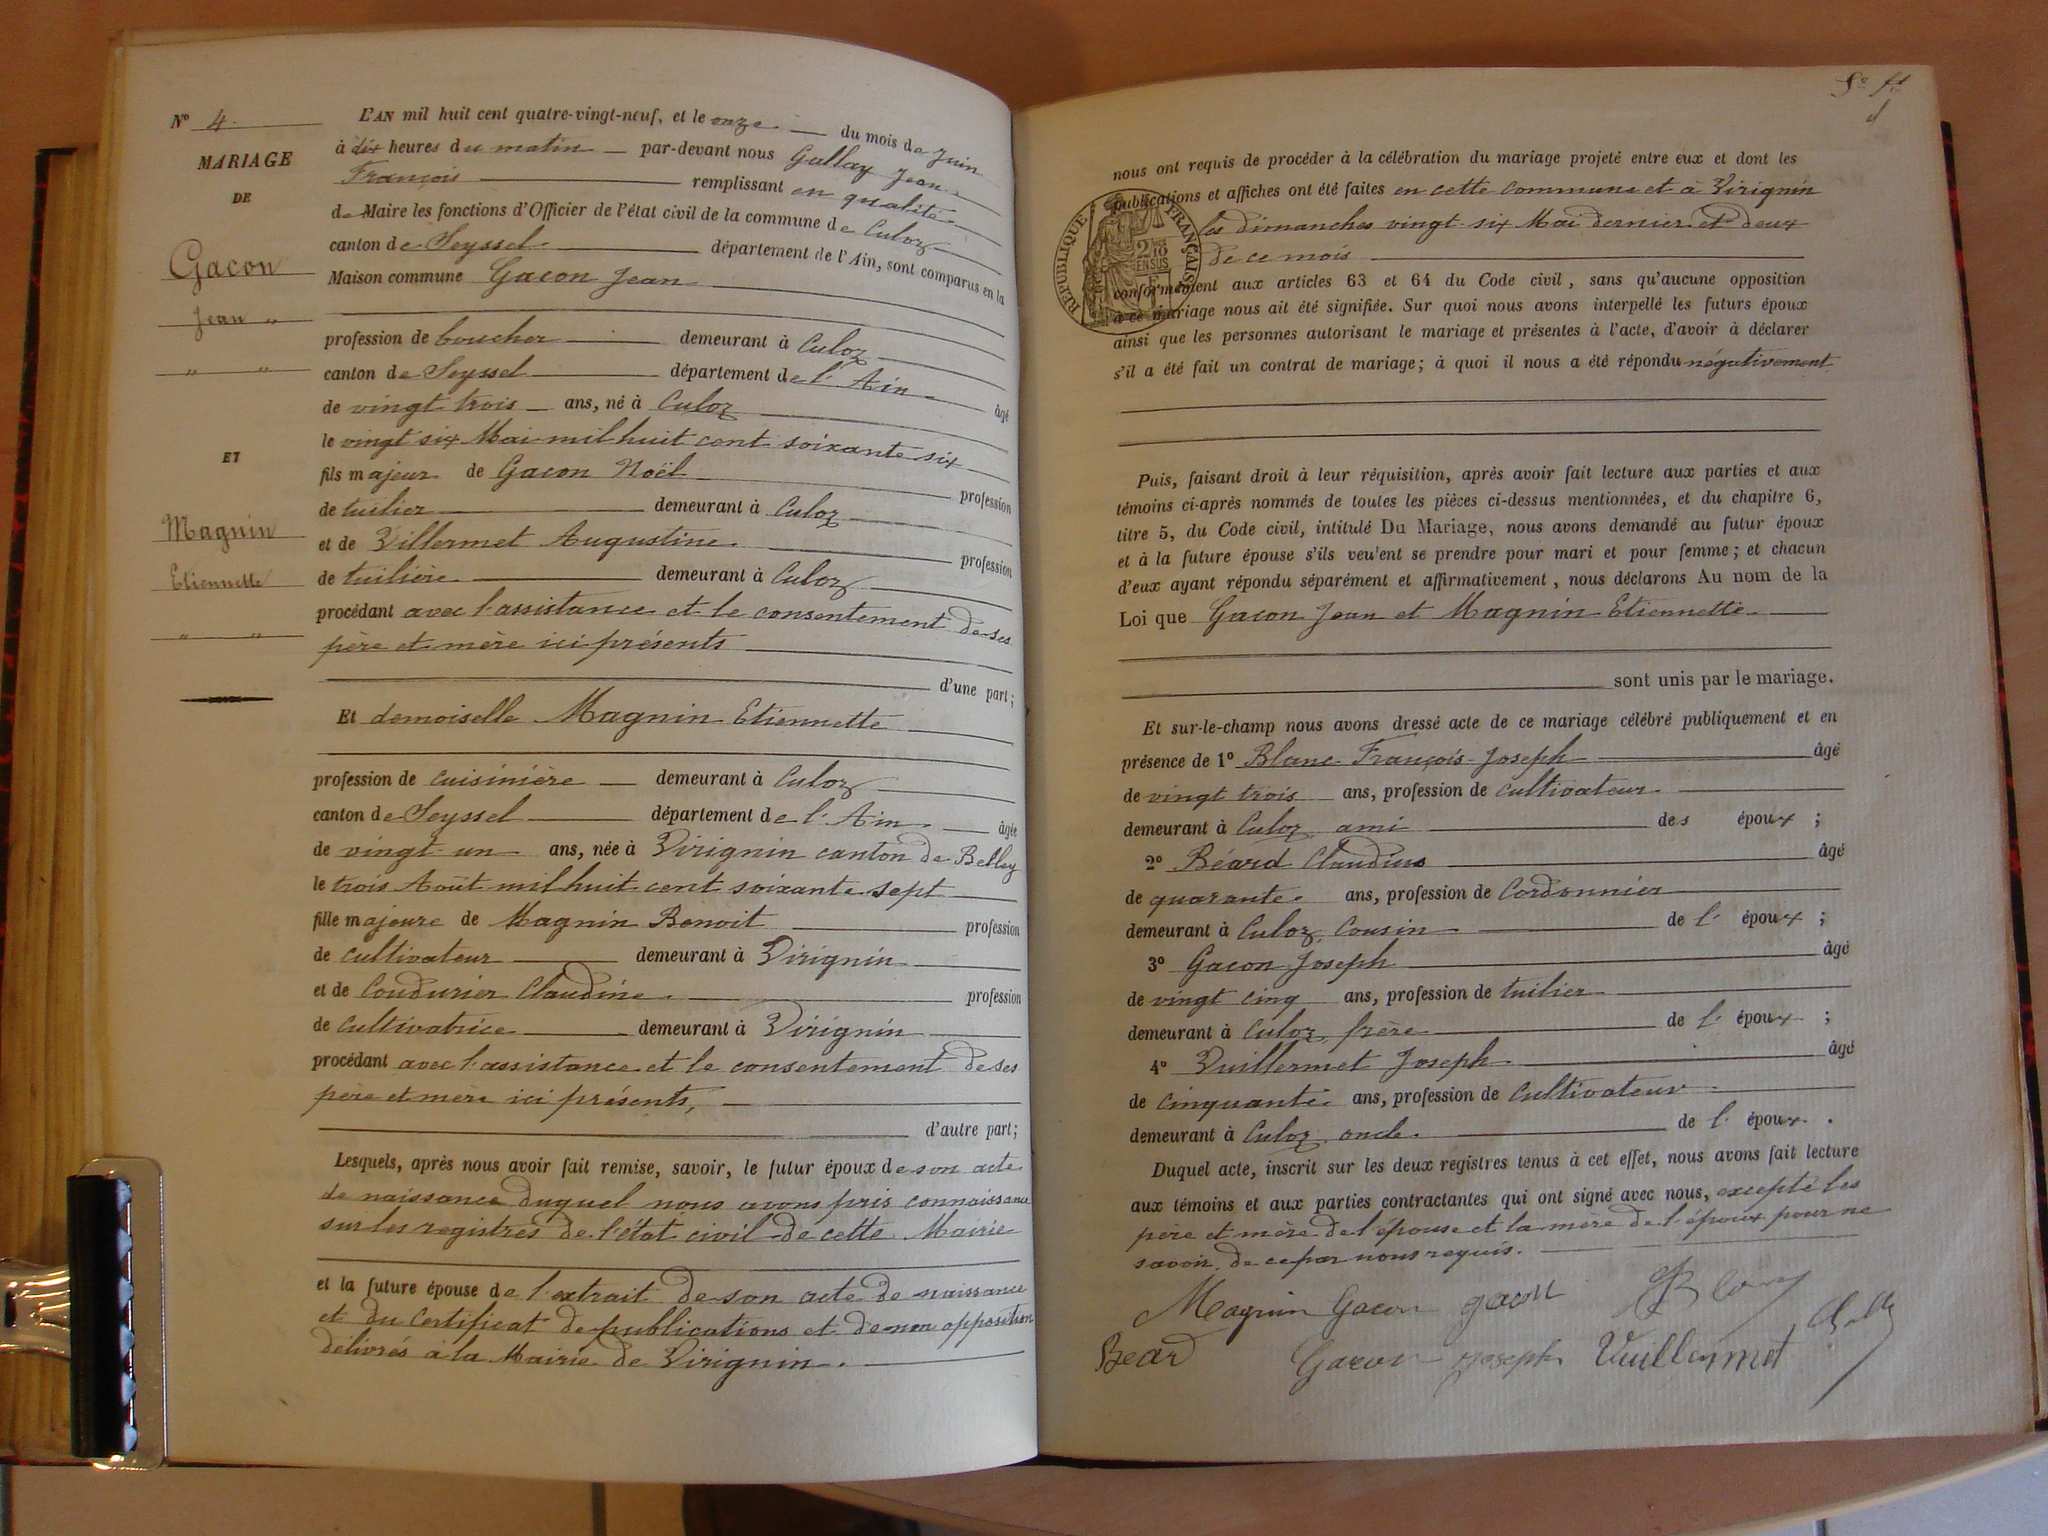 Nº 4.
MARIAGE
DE
Gacon
Jean "
" "
ET
Magnin
Etiennette
" "
L'AN mil huit cent quatre-vingt-neuf, et le onze du mois de Juin
à dix heures du matin par-devant nous Gallay Jean
François remplissant en qualité
de Maire les fonctions d'Officier de l'état civil de la commune de Culoz
canton de Seyssel département de l'Ain, sont comparus en la
Maison commune Gacon Jean
profession de boucher demeurant à Culoz
canton de Seyssel département de l'Ain âgé
de vingt trois ans, né à Culoz
le vingt six Mai mil huit cent soixante six
fils majeur de Gacon Noël profession
de tuilier demeurant à Culoz
et de Villermet Augustine profession
de tuilière demeurant à Culoz
procédant avec l'assistance et le consentement de ses
père et mère ici présents
d'une part;
Et demoiselle Magnin Etiennette
profession de cuisinière demeurant à Culoz
canton de Seyssel département de l'Ain âgée
de vingt un ans, née à Virignin canton de Belley
le trois Août mil huit cent soixante sept
fille majeure de Magnin Benoit profession
de cultivateur demeurant à Virignin
et de Coudurier Claudine profession
de cultivatrice demeurant à Virignin
procédant avec l'assistance et le consentement de ses
père et mère ici présents,
d'autre part;
Lesquels, après nous avoir fait remise, savoir, le futur époux de son acte
de naissance duquel nous avons pris connaissance
sur les registres de l'état civil de cette Mairie
et la future épouse de l'extrait de son acte de naissance
et du certificat de publications et de non opposition
délivrés à la Mairie de Virignin.
nous ont requis de procéder à la célébration du mariage projeté entre eux et dont les
publications et affiches ont été faites en cette commune et à Virignin
les dimanches vingt six Mai dernier et deux
de ce mois
RÉPUBLIQUE FRANÇAISE
conformément aux articles 63 et 64 du Code civil, sans qu'aucune opposition
à ce mariage nous ait été signifiée. Sur quoi nous avons interpellé les futurs époux
ainsi que les personnes autorisant le mariage et présentes à l'acte, d'avoir à déclarer
s'il a été fait un contrat de mariage; à quoi il nous a été répondu négativement
Puis, faisant droit à leur réquisition, après avoir fait lecture aux parties et aux
témoins ci-après nommés de toutes les pièces ci-dessus mentionnées, et du chapitre 6,
titre 5, du Code civil, intitulé Du Mariage, nous avons demandé au futur époux
et à la future épouse s'ils veulent se prendre pour mari et pour femme; et chacun
d'eux ayant répondu séparément et affirmativement, nous déclarons Au nom de la
Loi que Gacon Jean et Magnin Etiennette
sont unis par le mariage.
Et sur-le-champ nous avons dressé acte de ce mariage célébré publiquement et en
présence de 1º Blanc François Joseph âgé
de vingt trois ans, profession de cultivateur
demeurant à Culoz, ami des époux;
2º Béard Claudius âgé
de quarante ans, profession de Cordonnier
demeurant à Culoz, Cousin de l'époux;
3º Gacon Joseph âgé
de vingt cinq ans, profession de tuilier
demeurant à Culoz, frère de l'époux;
4º Vuillermet Joseph âgé
de cinquante ans, profession de cultivateur
demeurant à Culoz, oncle de l'époux.
Duquel acte, inscrit sur les deux registres tenus à cet effet, nous avons fait lecture
aux témoins et aux parties contractantes qui ont signé avec nous, excepté les
père et mère de l'épouse et la mère de l'époux pour ne
savoir, de ce par nous requis.
Magnin Gacon gacon
Beard Gacon Joseph Vuillermet